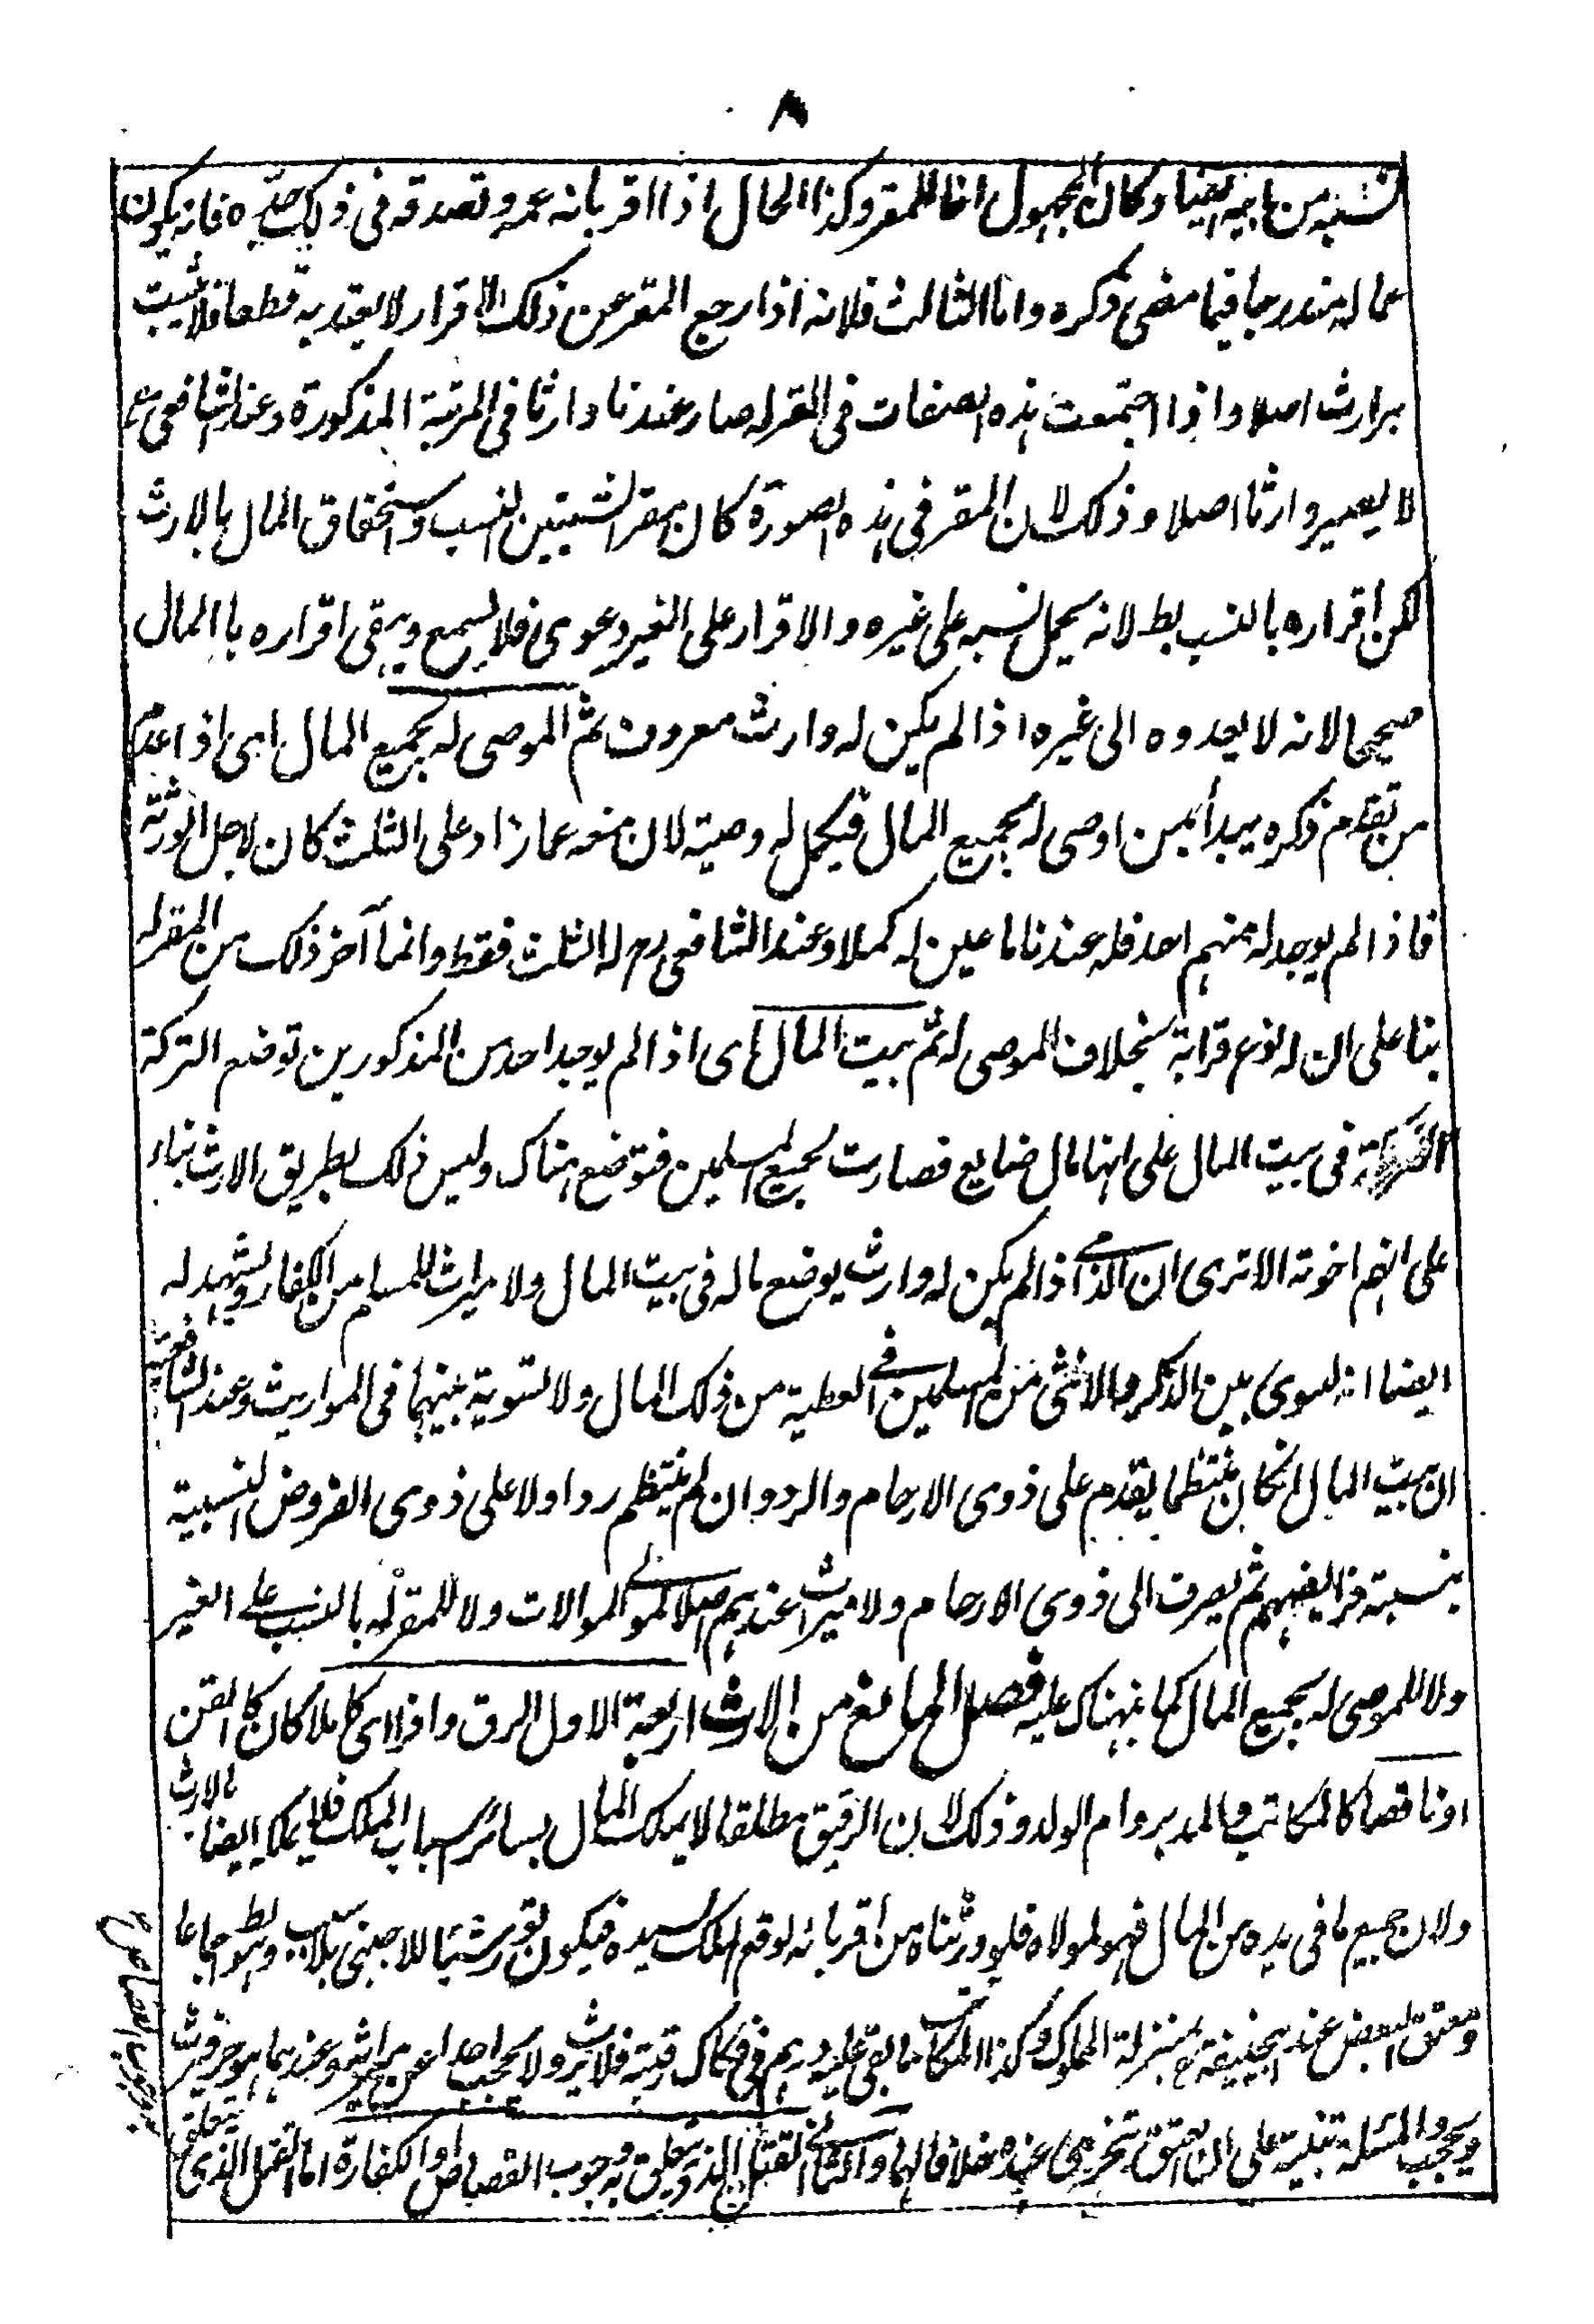 ٨
نسبه من ابيه ايضا وكان المجهول اخا للمقر وكذا الحال اذا اقر بانه عمه وتصدقه فى ذلك جده فانه يكون
عما له مندرجا فيما مضى ذكره واما الثالث فلانه اذا رجع المقر عن ذلك الاقرار لا يعتد به قطعا فلا يثبت
به ارث اصلا واذا اجتمعت هذه الصفات فى المقر له صار عندنا وارثا فى المرتبة المذكورة وعند الشافعى رح
لا يصير وارثا اصلا وذلك لان المقر فى هذه الصورة كان مقرا بشيئين النسب واستحقاق المال بالارث
لكن اقراره بالنسب بط لانه يحمل نسبه على غيره والاقرار على الغير دعوى فلا يسمع ويبقى اقراره بالمال
صحيحا لانه لا يعدوه الى غيره اذا لم يكن له وارث معروف ثم الموصى له بجميع المال اى اذا عدم
من تقدم ذكره يبدأ بمن اوصى له بجميع المال فيكمل له وصيته لان منعه عما زاد على الثلث كان لاجل الورثة
فاذا لم يوجد له منهم احد فله عندنا ما عين له كملا وعند الشافعى رح له الثلث فقط وانما آخر ذلك من المقر له
بنا على ان له نوع قرابة بخلاف الموصى له ثم بيت المال اى اذا لم يوجد احد من المذكورين توضع التركة
فى بيت المال على انها مال ضايع فصارت لجميع المسلمين فتوضع هناك وليس ذلك بطريق الارث بناء
على انهم اخوته الا ترى ان الذمى اذا لم يكن له وارث يوضع ماله فى بيت المال ولا ميراث للمسلم من الكفار ويشهد له
ايضا انه يسوى بين الذكر والانثى من المسلمين فى العطية من ذلك المال ولا تسوية بينهما فى المواريث وعند الشافعية
ان بيت المال انكان منتظما يقدم على ذوى الارحام والرد وان لم ينتظم رد اولا على ذوى الفروض النسبية
بنسبة فرايضهم ثم يصرف الى ذوى الارحام ولا ميراث عندهم اصلا لمولى الموالات ولا للمقر له بالنسب على الغير
ولا للموصى له بجميع المال كما نبهناك عليه فصل المانع من الارث اربعة الاول الرق وافرا اى كاملا كان كالقن
او ناقصا كالمكاتب والمدبر وام الولد وذلك لان الرقيق مطلقا لا يملك المال بسائر اسباب الملك فلا يملكه ايضا بالارث
ولان جميع ما فى يده من المال فهو لمولاه فلو ورثناه من اقربائه لوقع الملك لسيده فيكون توريثا للاجنبى بلا سبب وهو بط اجماعا
ومعتق البعض عند ابيحنيفة رح بمنزلة المملوك وكذا المكاتب ما بقى عليه درهم فى فكاك رقبته فلا يرث ولا يحجب احدا عن ميراثه وعندهما هو حر فيرث
ويحجب والمسئلة مبنية على ان العتق يتجزى عنده خلافا لهما والثانى القتل الذى يتعلق به وجوب القصاص او الكفارة اما القتل الذى يتعلق
به وجوب القصاص